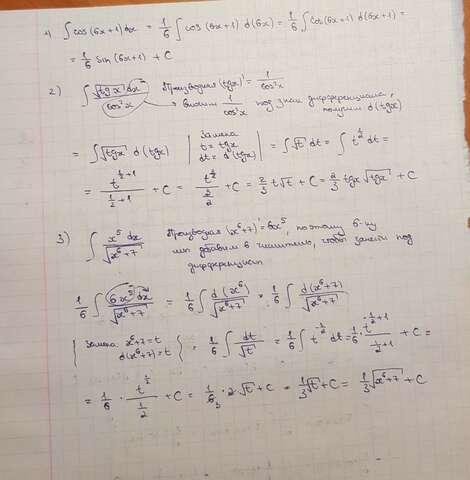 1) ∫ cos(6x+1) dx = 1/6 ∫ cos(6x+1) d(6x) = 1/6 ∫ cos(6x+1) d(6x+1) =
= 1/6 sin(6x+1) + C
2) ∫ √tgx dx / cos²x Производная (tgx)' = 1/cos²x
→ вносим 1/cos²x под знак дифференциала, получим d(tgx)
= ∫ √tgx d(tgx) | Замена t = tgx dt = d(tgx) | = ∫ √t dt = ∫ t^(1/2) dt =
= t^(1/2+1) / (1/2+1) + C = t^(3/2) / (3/2) + C = 2/3 t√t + C = 2/3 tgx √tgx + C
3) ∫ x⁵ dx / √(x⁶+7) Производная (x⁶+7)' = 6x⁵, поэтому 6-ку
мы добавим в числитель, чтобы занести под
дифференциал
1/6 ∫ 6x⁵ dx / √(x⁶+7) = 1/6 ∫ d(x⁶) / √(x⁶+7) = 1/6 ∫ d(x⁶+7) / √(x⁶+7)
{ Замена x⁶+7=t d(x⁶+7)=t } = 1/6 ∫ dt/√t = 1/6 ∫ t^(-1/2) dt = 1/6 · t^(-1/2+1) / (-1/2+1) + C =
= 1/6 · t^(1/2) / (1/2) + C = 1/6 · 2 · √t + C = 1/3 √t + C = 1/3 √(x⁶+7) + C